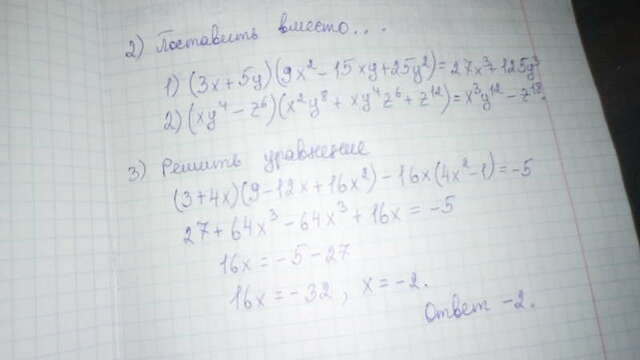 2) Поставить вместо...
1) (3x+5y)(9x²-15xy+25y²)=27x³+125y³
2) (xy⁴-z⁶)(x²y⁸+xy⁴z⁶+z¹²)=x³y¹²-z¹⁸.
3) Решить уравнение
(3+4x)(9-12x+16x²)-16x(4x²-1)=-5
27+64x³-64x³+16x=-5
16x=-5-27
16x=-32, x=-2.
Ответ -2.